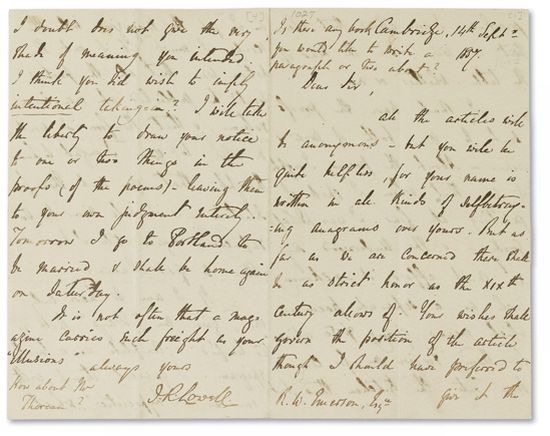 [4]
I doubt does not give the very
shade of meaning you intended.
I think you did wish to imply
intentional taking-in? I will take
the liberty to draw your notice
to one or two things in the
proofs (of the poems) – leaving them
to your own judgment entirely.
Tomorrow I go to Portland to
be married & shall be home again
on Saturday.
It is not often that a mag-
azine carries such freight as your
"Illusions" always yours
How about Mr J. R. Lowell
Thoreau?
1027
Is there any book Cambridge, 14th Septr
you would like to write a 1857.
paragraph or two about?
Dear Sir,
all the articles will
be anonymous – but you will be
quite helpless, for your name is
written in all kinds of selfbetray-
ing anagrams over yours. But as
far as we are concerned there shall
be as strict honor as the XIXth
century allows of. Your wishes shall
govern the position of the article
though I should have preferred to
R. W. Emerson, Esqr give it the